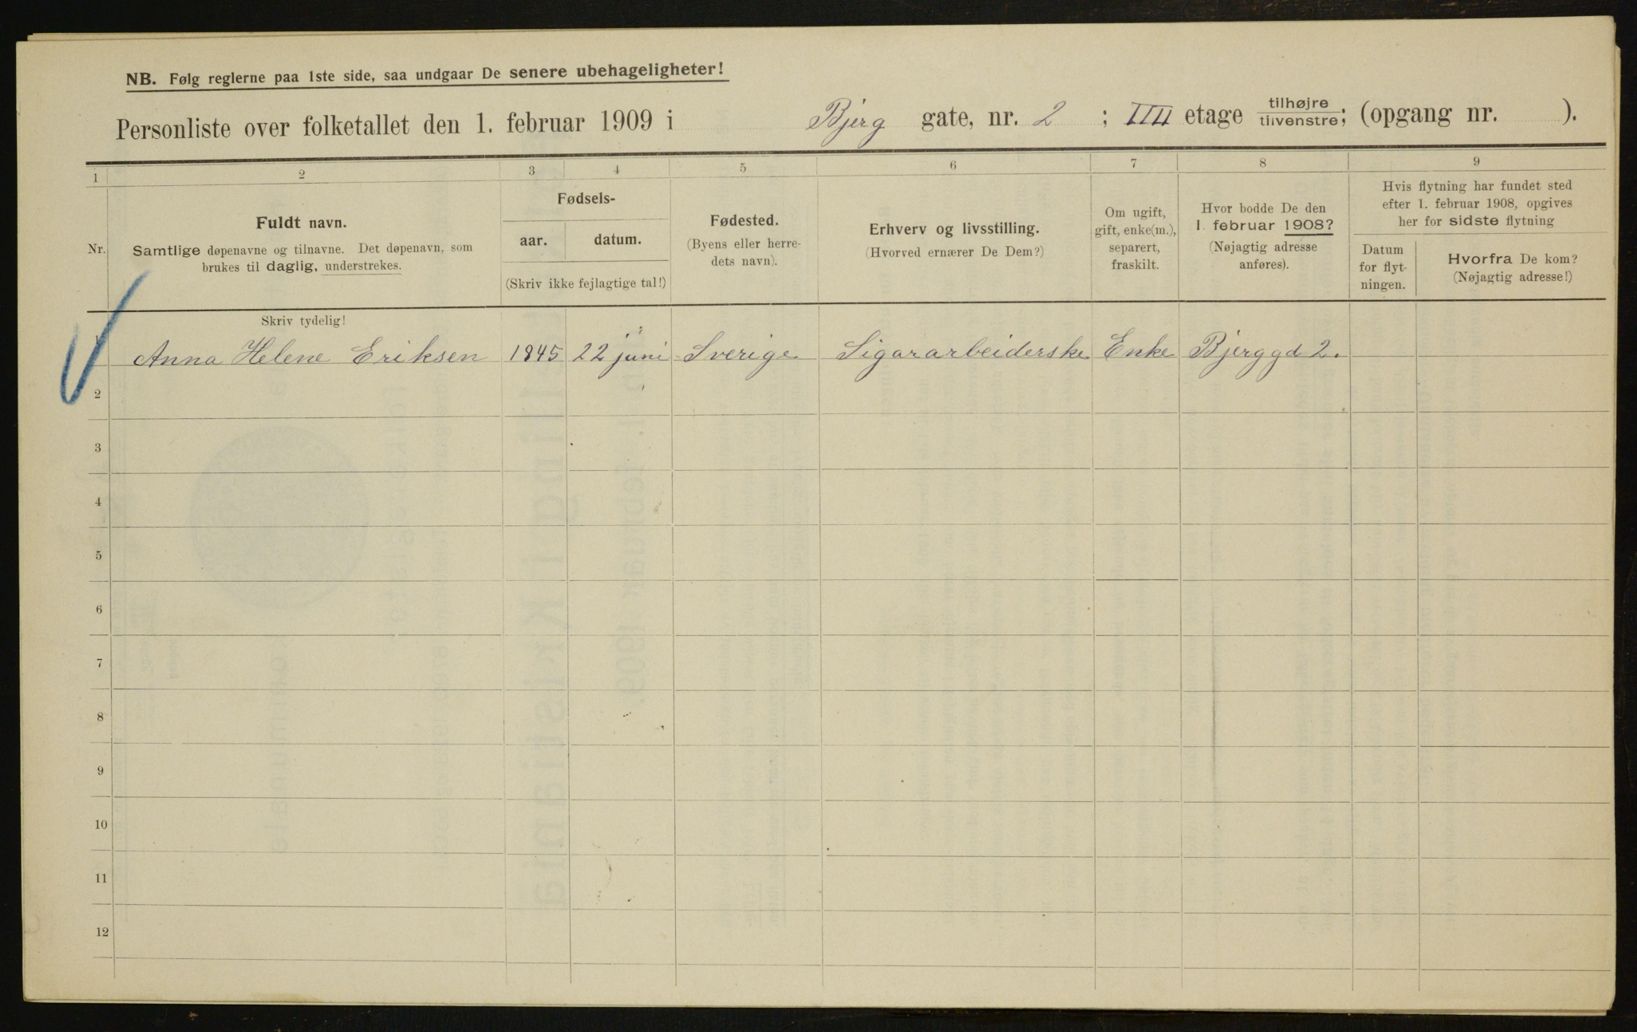 NB. Følg reglerne paa 1ste side, saa undgaar De senere ubehageligheter!
Personliste over folketallet den 1. februar 1909 i Bjerg gate, nr. 2 ; IIII etage tilhøjre tilvenstre; (opgang nr. ).
1 2 3 4 5 6 7 8 9
Nr.
Fuldt navn.
Samtlige døpenavne og tilnavne. Det døpenavn, som
brukes til daglig, understrekes.
Fødsels-
aar. datum.
(Skriv ikke fejlagtige tal!)
Fødested.
(Byens eller herre-
dets navn).
Erhverv og livsstilling.
(Hvorved ernærer De Dem?)
Om ugift,
gift, enke(m.),
separert,
fraskilt.
Hvor bodde De den
1. februar 1908?
(Nøjagtig adresse
anføres).
Hvis flytning har fundet sted
efter 1. februar 1908, opgives
her for sidste flytning
Datum
for flyt-
ningen.
Hvorfra De kom?
(Nøjagtig adresse!)
Skriv tydelig!
1 Anna Helene Eriksen 1845 22 juni Sverige Sigararbeiderske Enke Bjerggd 2.
2
3
4
5
6
7
8
9
10
11
12